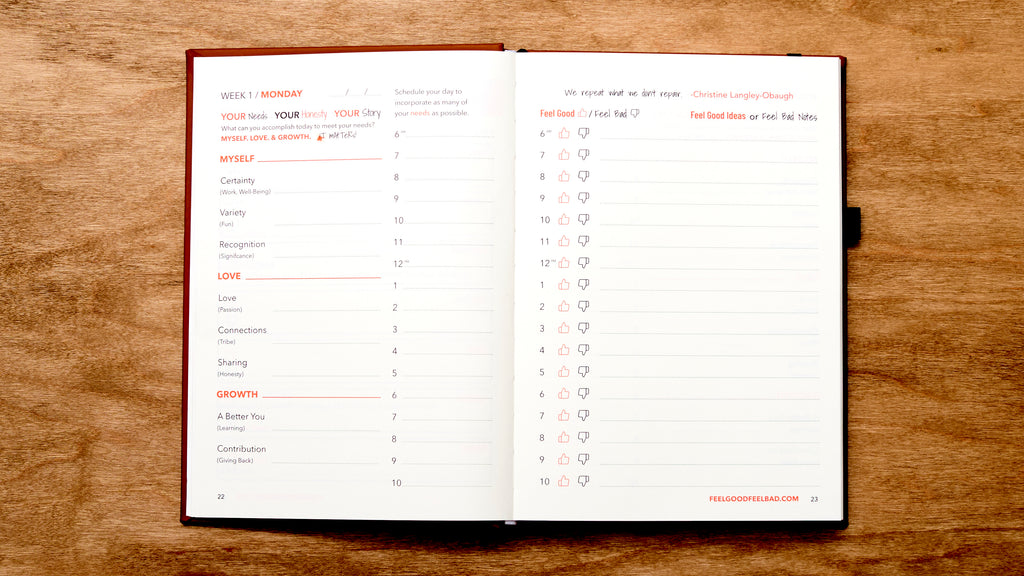 WEEK 1 / MONDAY / /
YOUR Needs YOUR Honesty YOUR Story
What can you accomplish today to meet your needs?
MYSELF, LOVE, & GROWTH. I MATTER!
MYSELF
Certainty
(Work, Well-Being)
Variety
(Fun)
Recognition
(Significance)
LOVE
Love
(Passion)
Connections
(Tribe)
Sharing
(Honesty)
GROWTH
A Better You
(Learning)
Contribution
(Giving Back)
22
Schedule your day to
incorporate as many of
your needs as possible.
6 AM
7
8
9
10
11
12 PM
1
2
3
4
5
6
7
8
9
10
We repeat what we don't repair. -Christine Langley-Obaugh
Feel Good / Feel Bad Feel Good Ideas or Feel Bad Notes
6 AM
7
8
9
10
11
12 PM
1
2
3
4
5
6
7
8
9
10
FEELGOODFEELBAD.COM 23